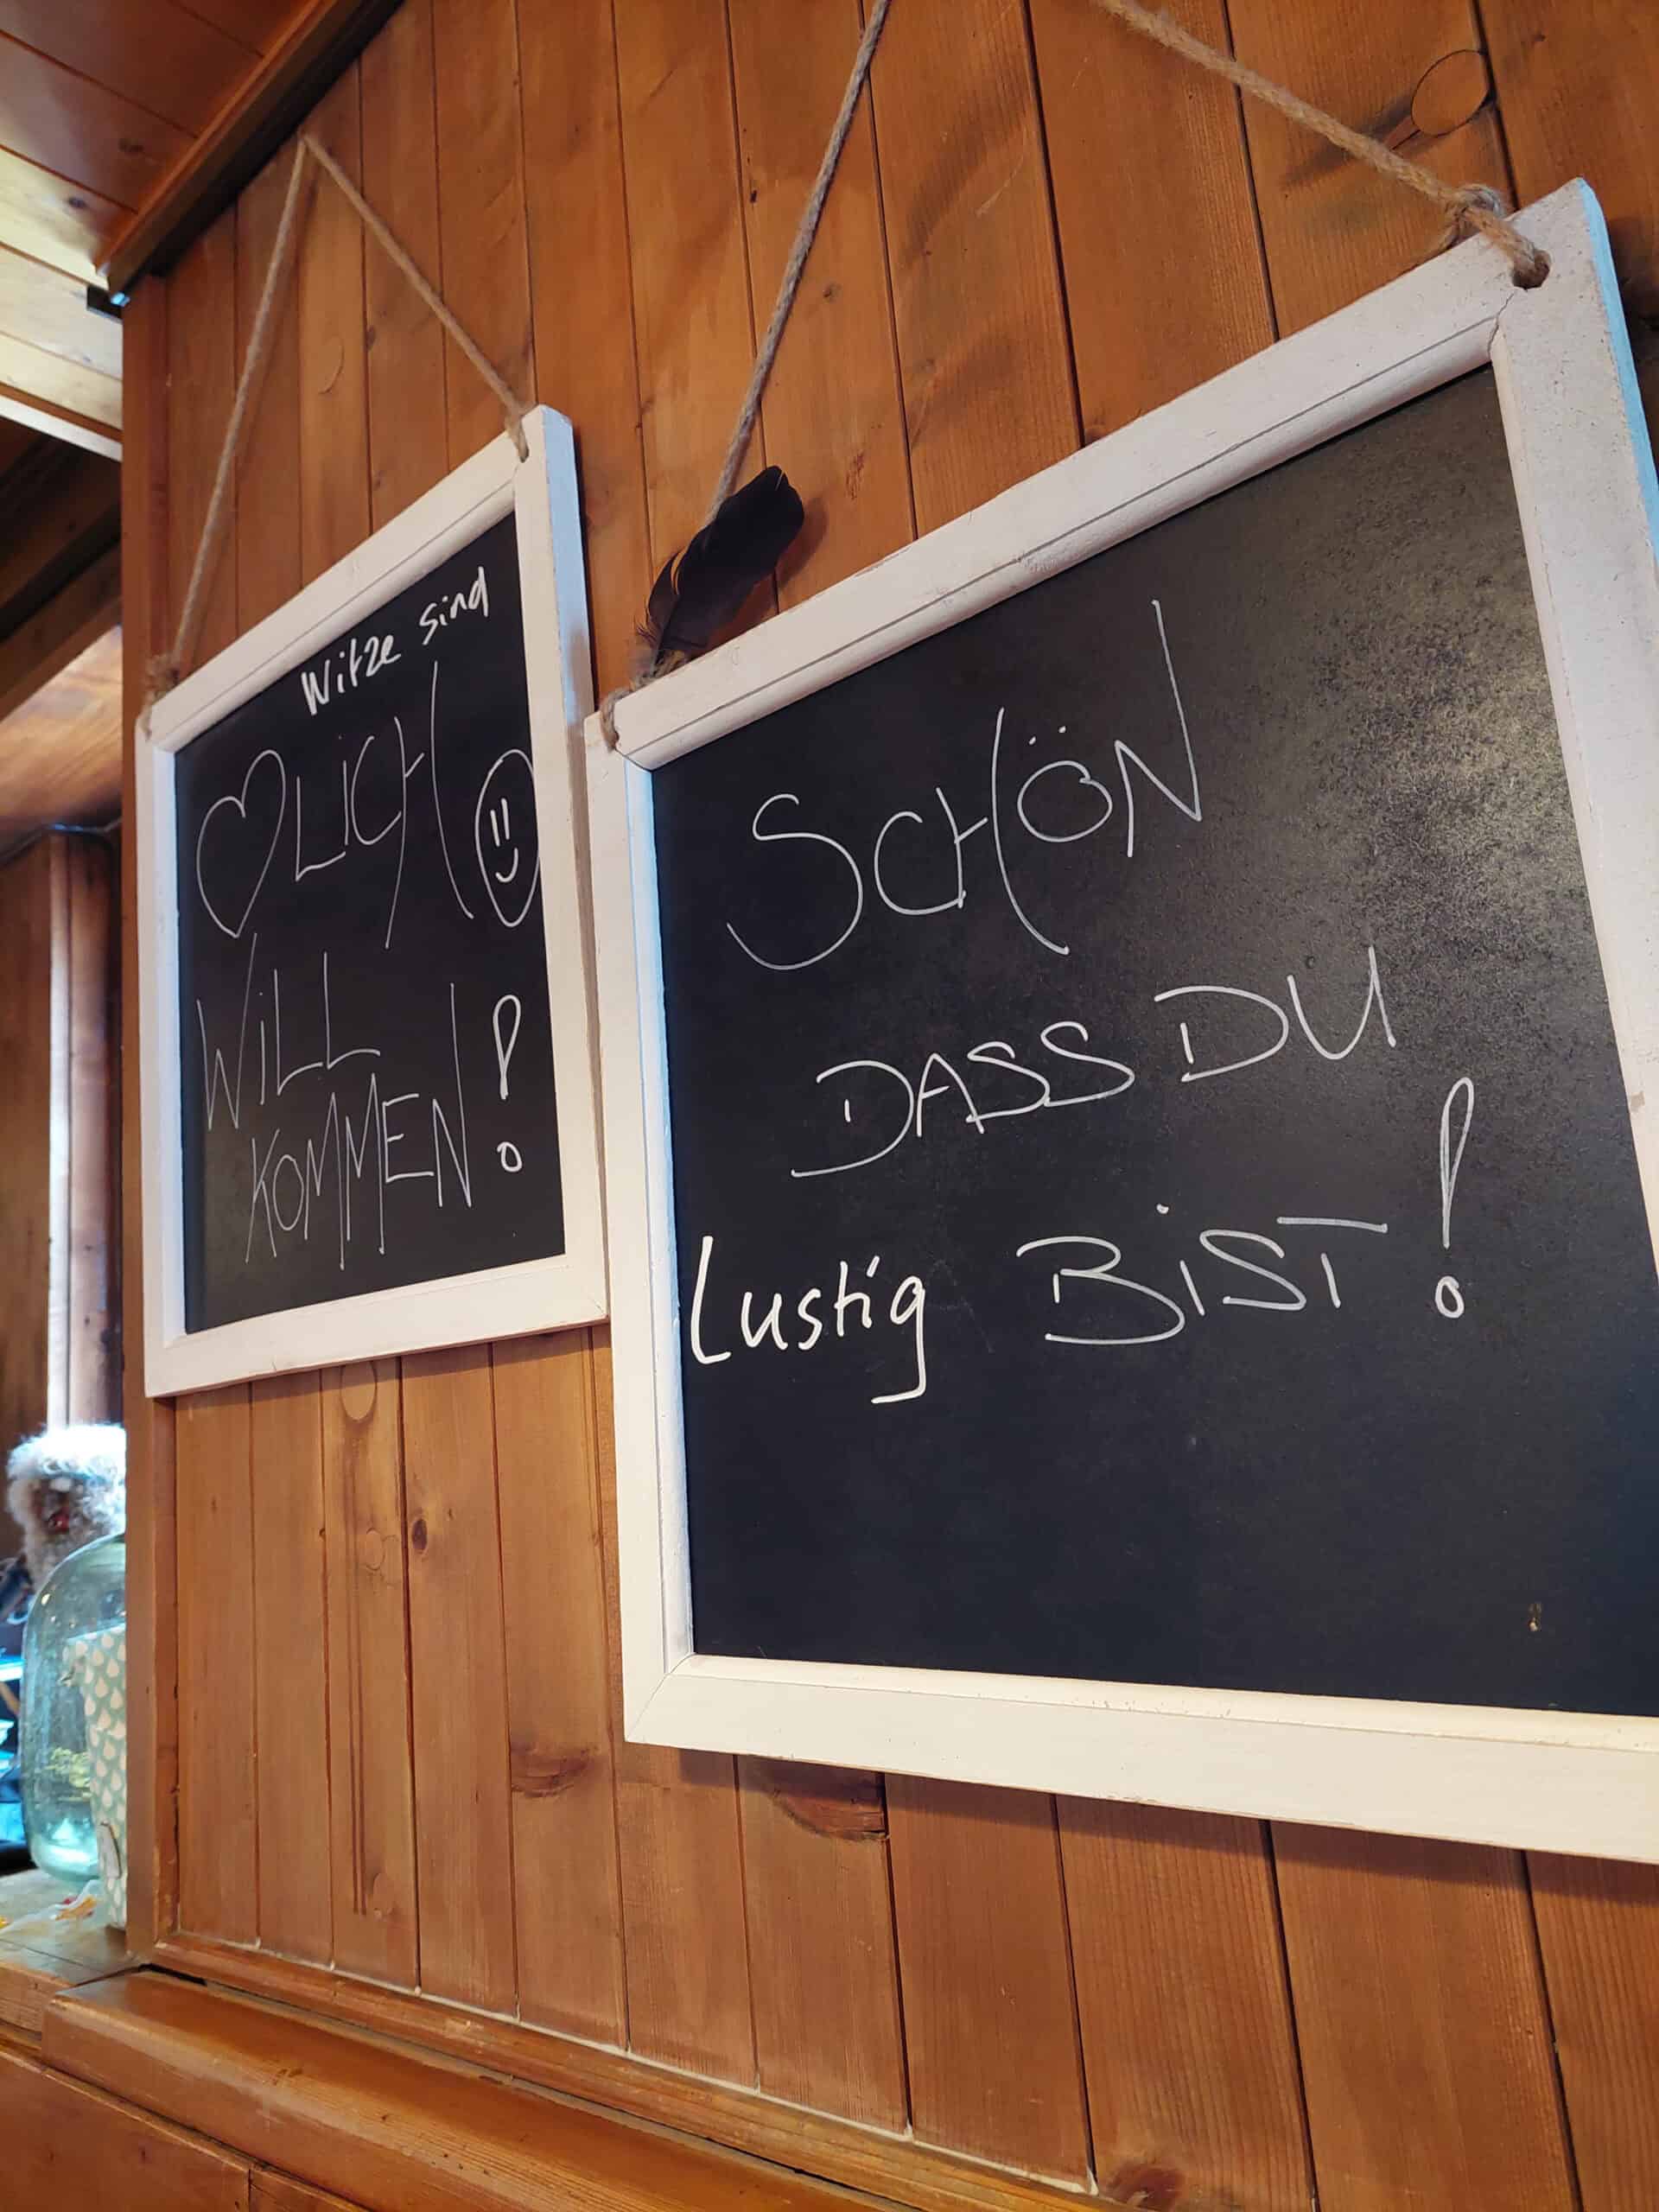 Witze sind
♡LICH
WiLL
KOMMEN!
SCHÖN
DASS DU
Lustig BiST!